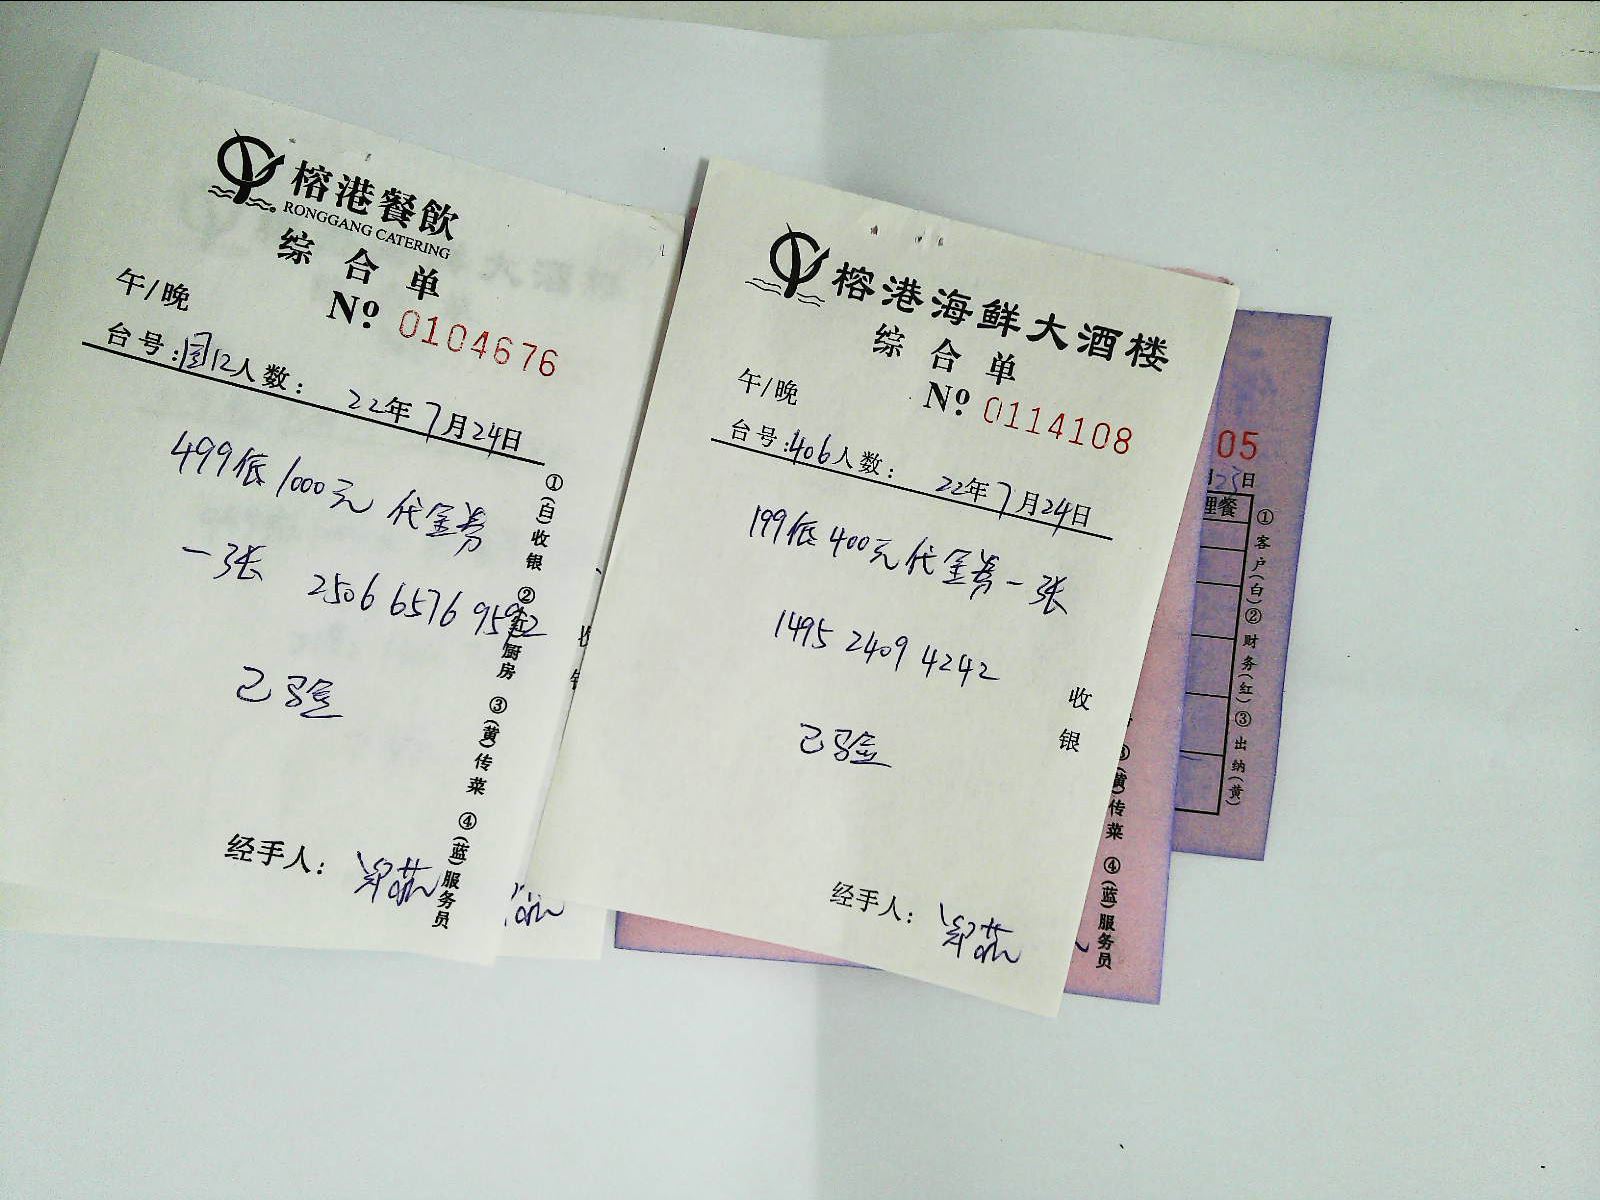 榕港餐飲
RONGGANG CATERING
综合单
午/晚
Nº 0104676
台号:围12人数: 22年7月24日
499低1000元 代金券
一张 2506 6576 9592
己验
经手人: 郑燕
①(白)收银 ②(红)厨房 ③(黄)传菜 ④(蓝)服务员
榕港海鲜大酒楼
综合单
午/晚
Nº 0114108
台号:406人数: 22年7月24日
199低400元代金券一张
1495 2409 4242
己验
收银
经手人: 郑燕
(黄)传菜 ④(蓝)服务员
05
23日
理餐
①客户(白)②财务(红)③出纳(黄)